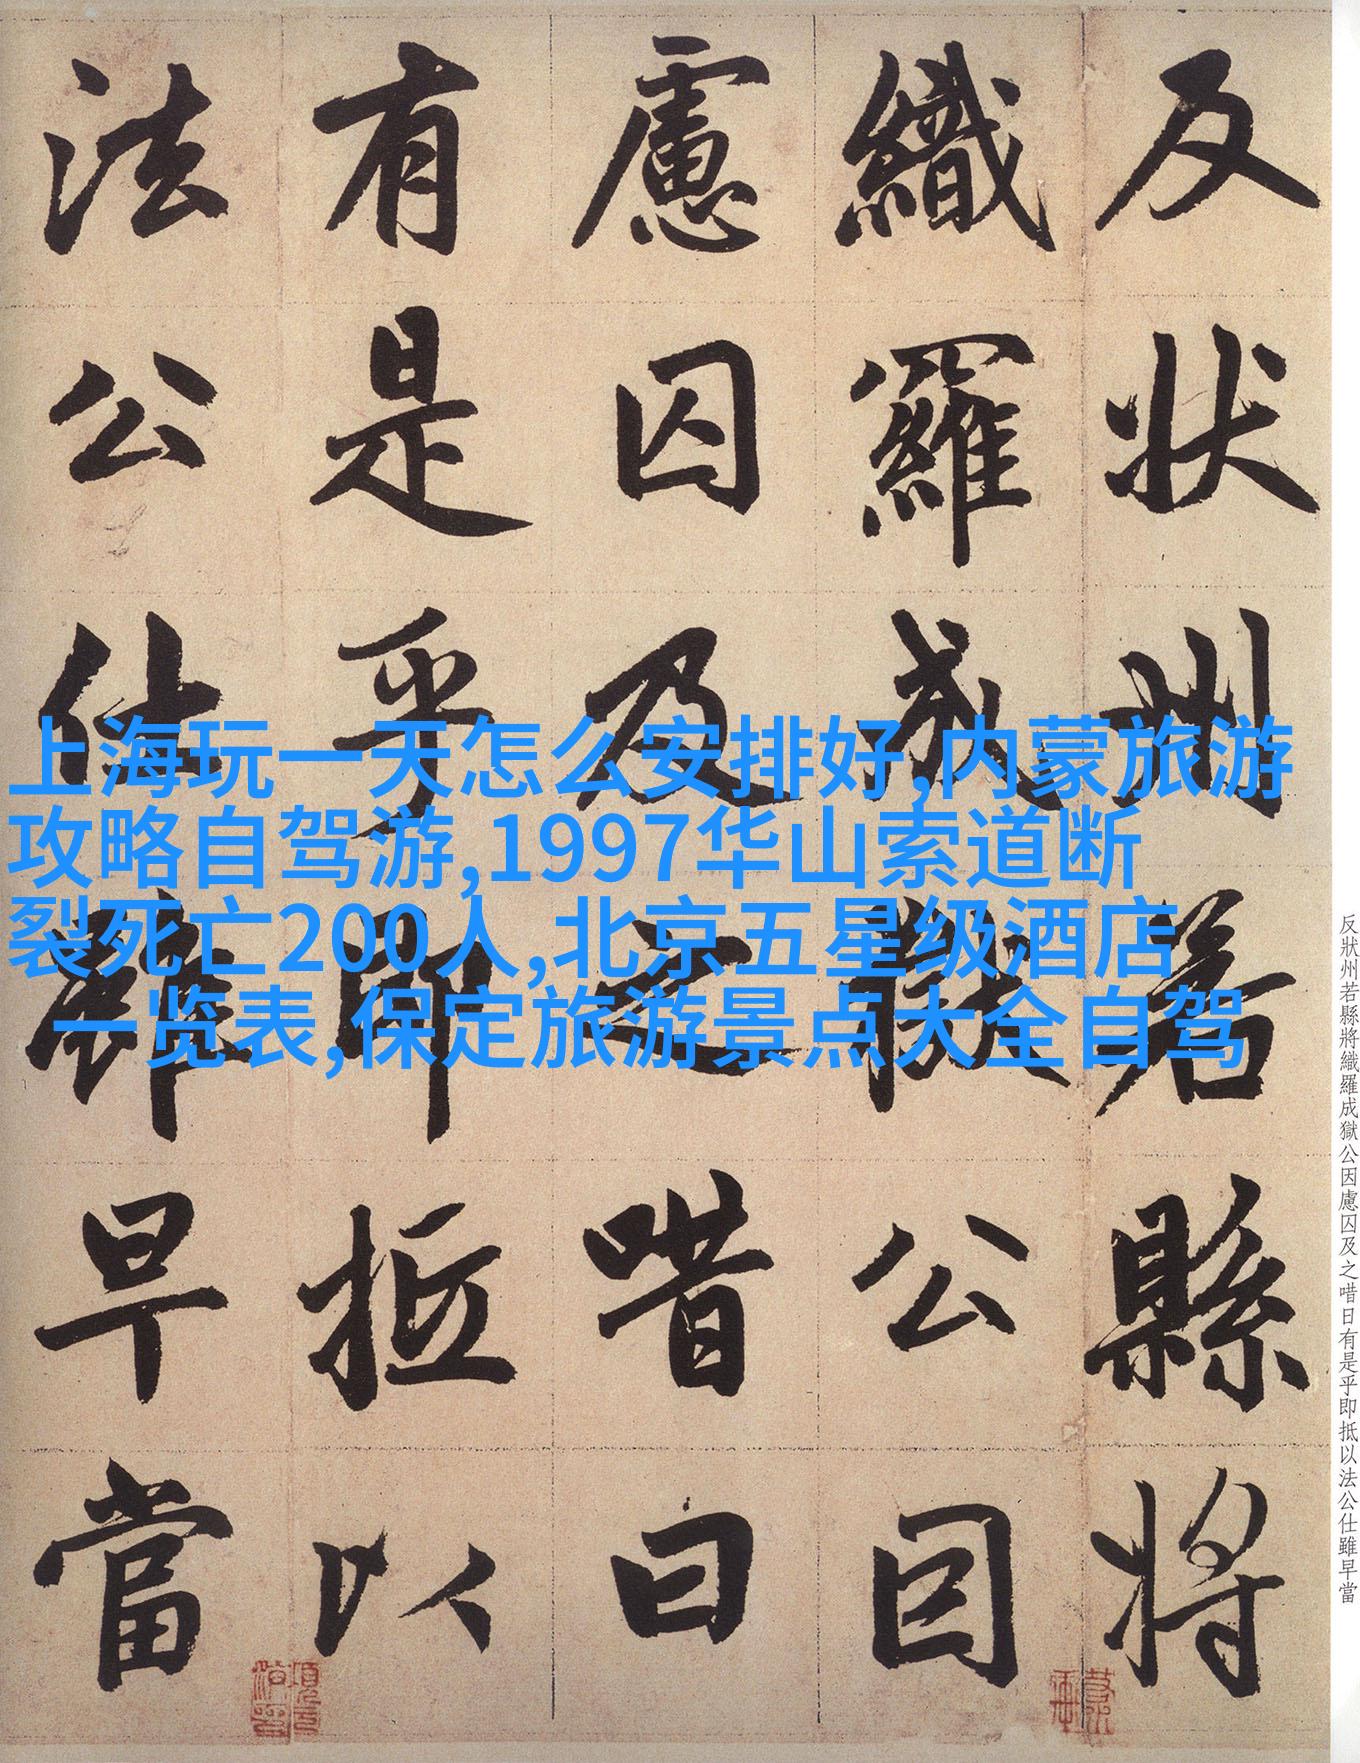 反状州若縣将
織羅成獄公因
慮囚及之唶曰
有是乎即抵以
法公仕雖早當
上海玩一天怎么安排好,内蒙旅游
攻略自驾游,1997华山索道断
裂死亡200人,北京五星级酒店
一览表,保定旅游景点大全自驾
反狀州若縣將織羅成獄公因慮囚及之唶日有是乎即抵以法公仕雖早當